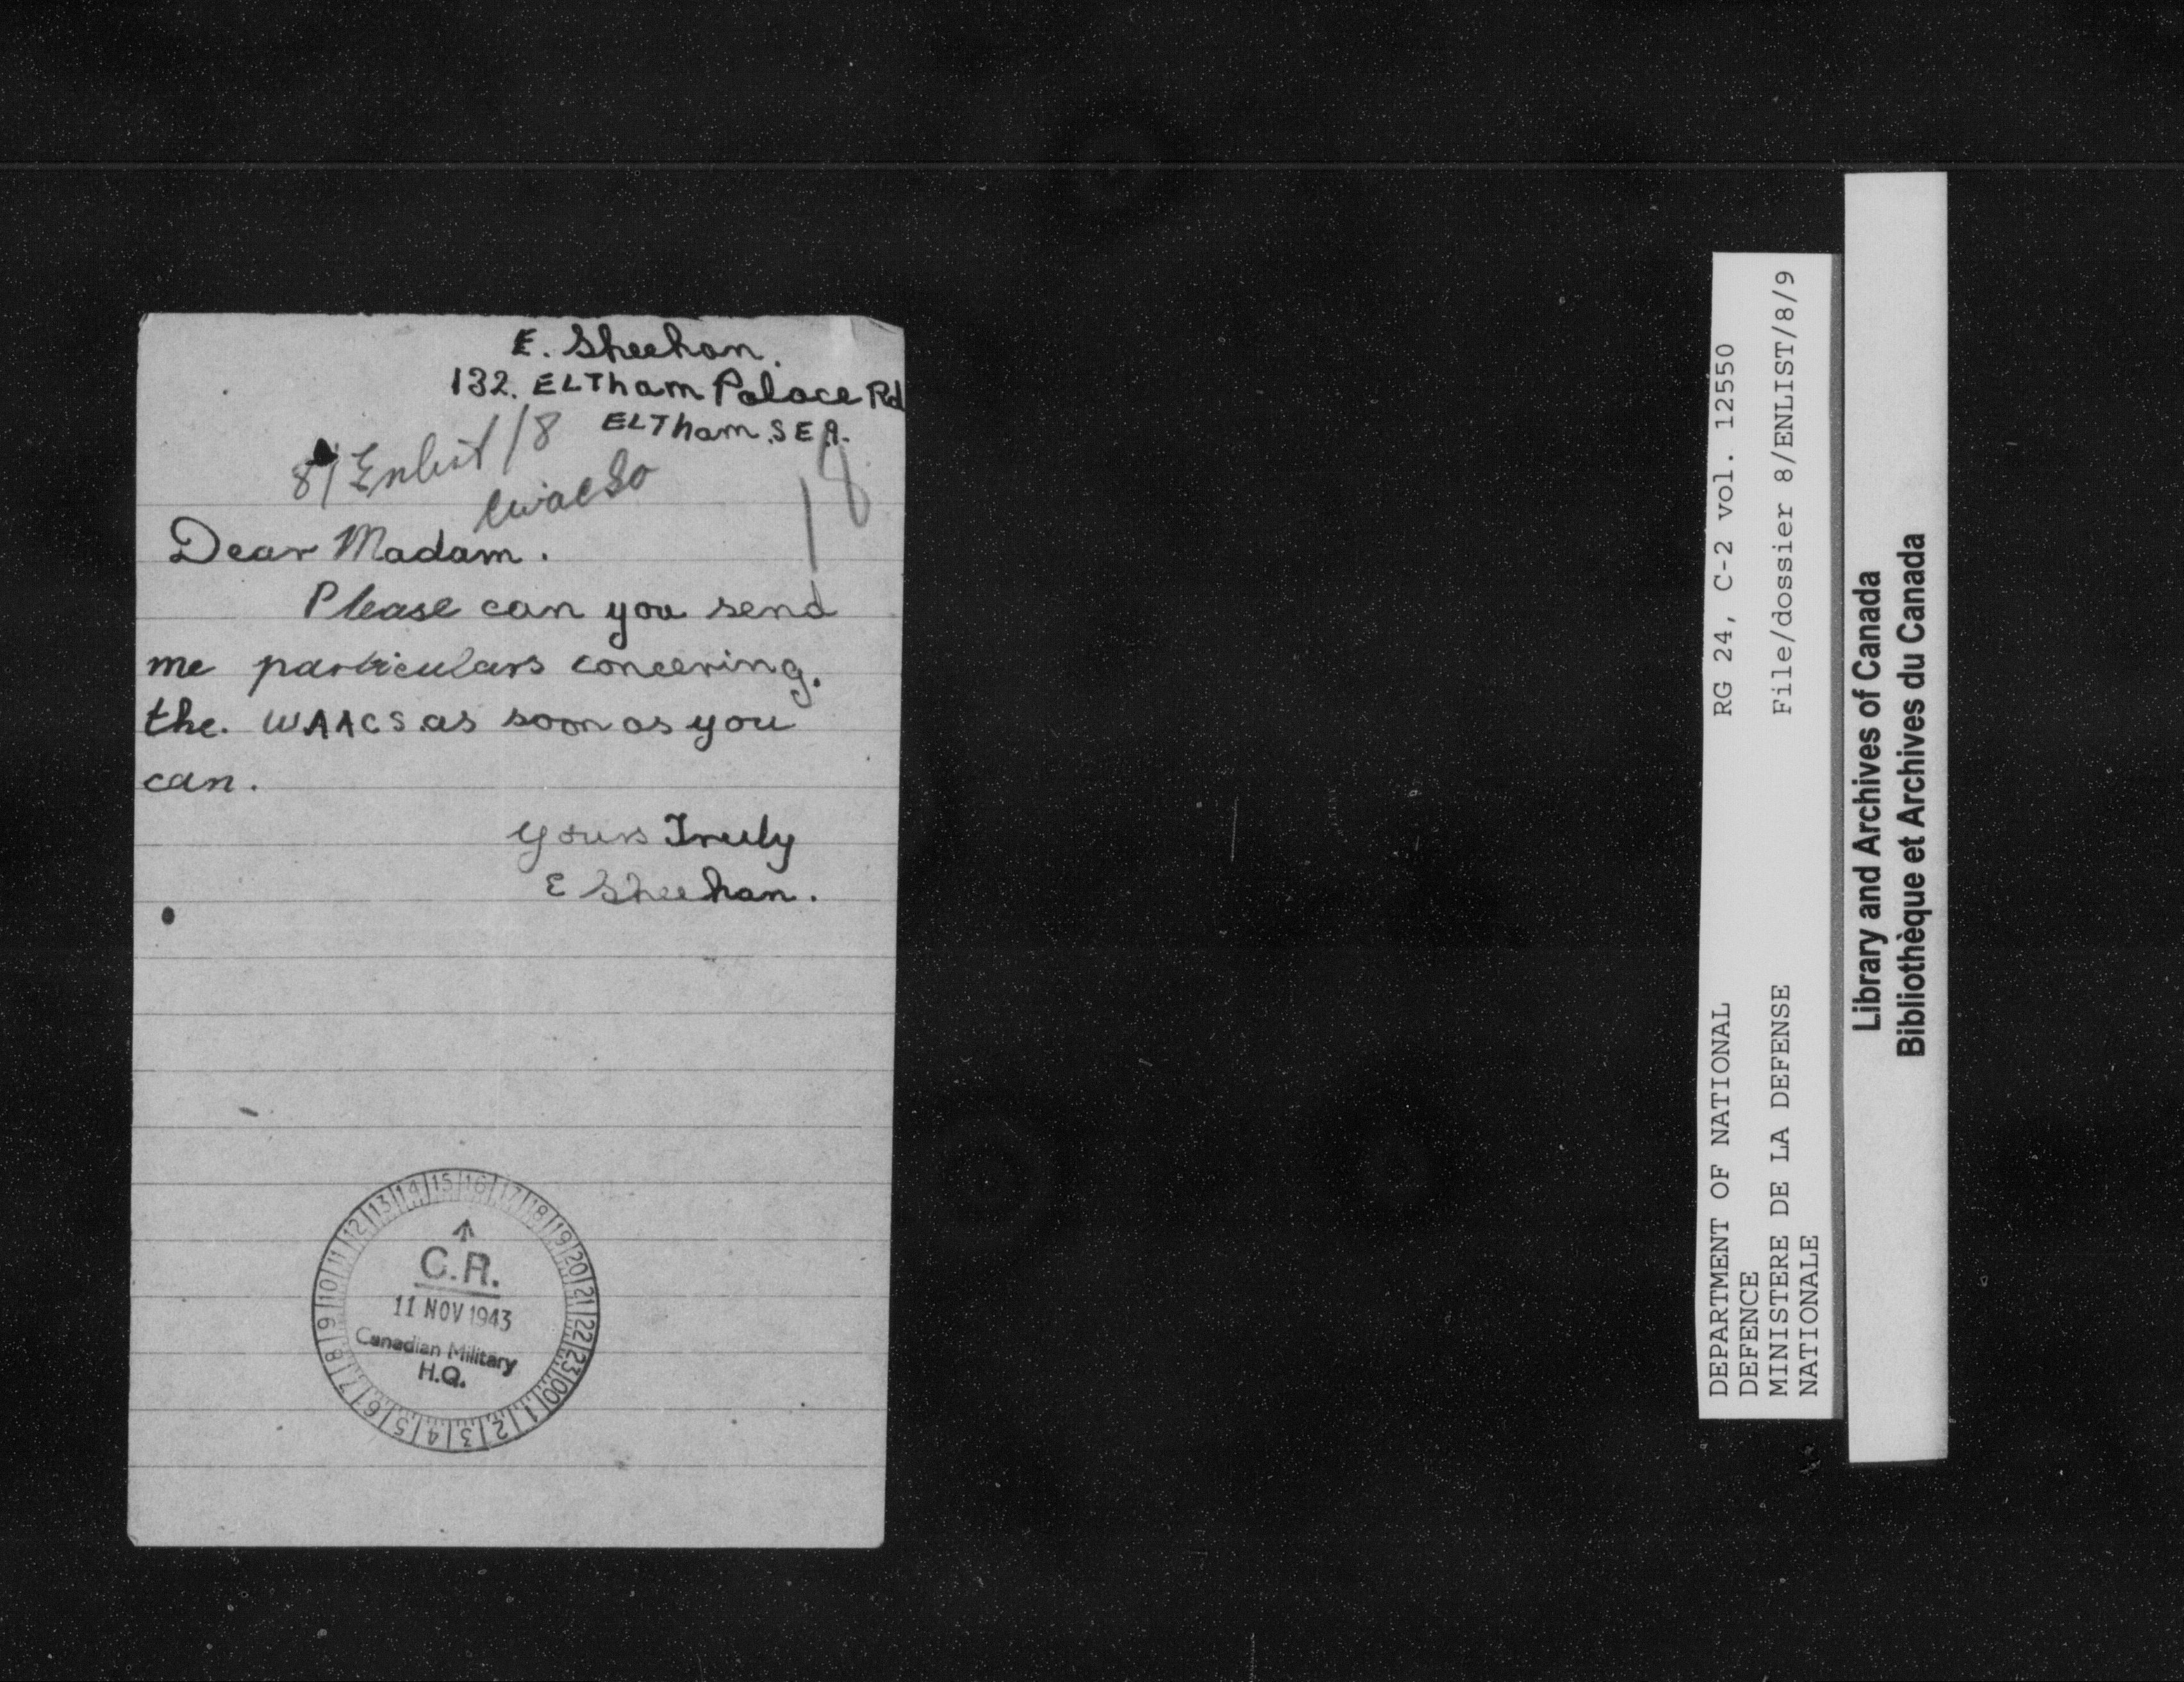 E. Sheehan.
132. ELTham Palace Rd
ELTham. S E 9.
8/Enlist/8
18
Dear Madam.
Please can you send
me particulars concerning.
the. WAACS as soon as you
can.
Yours Truly
E Sheehan.
C.R.
11 NOV 1943
Canadian Military
H.Q.
00 1 2 3 4 5 6 7 8 9 10 11 12 13 14 15 16 17 18 19 20 21 22 23
DEPARTMENT OF NATIONAL
DEFENCE
MINISTERE DE LA DEFENSE
NATIONALE
RG 24, C-2 vol. 12550
File/dossier 8/ENLIST/8/9
Library and Archives of Canada
Bibliothèque et Archives du Canada